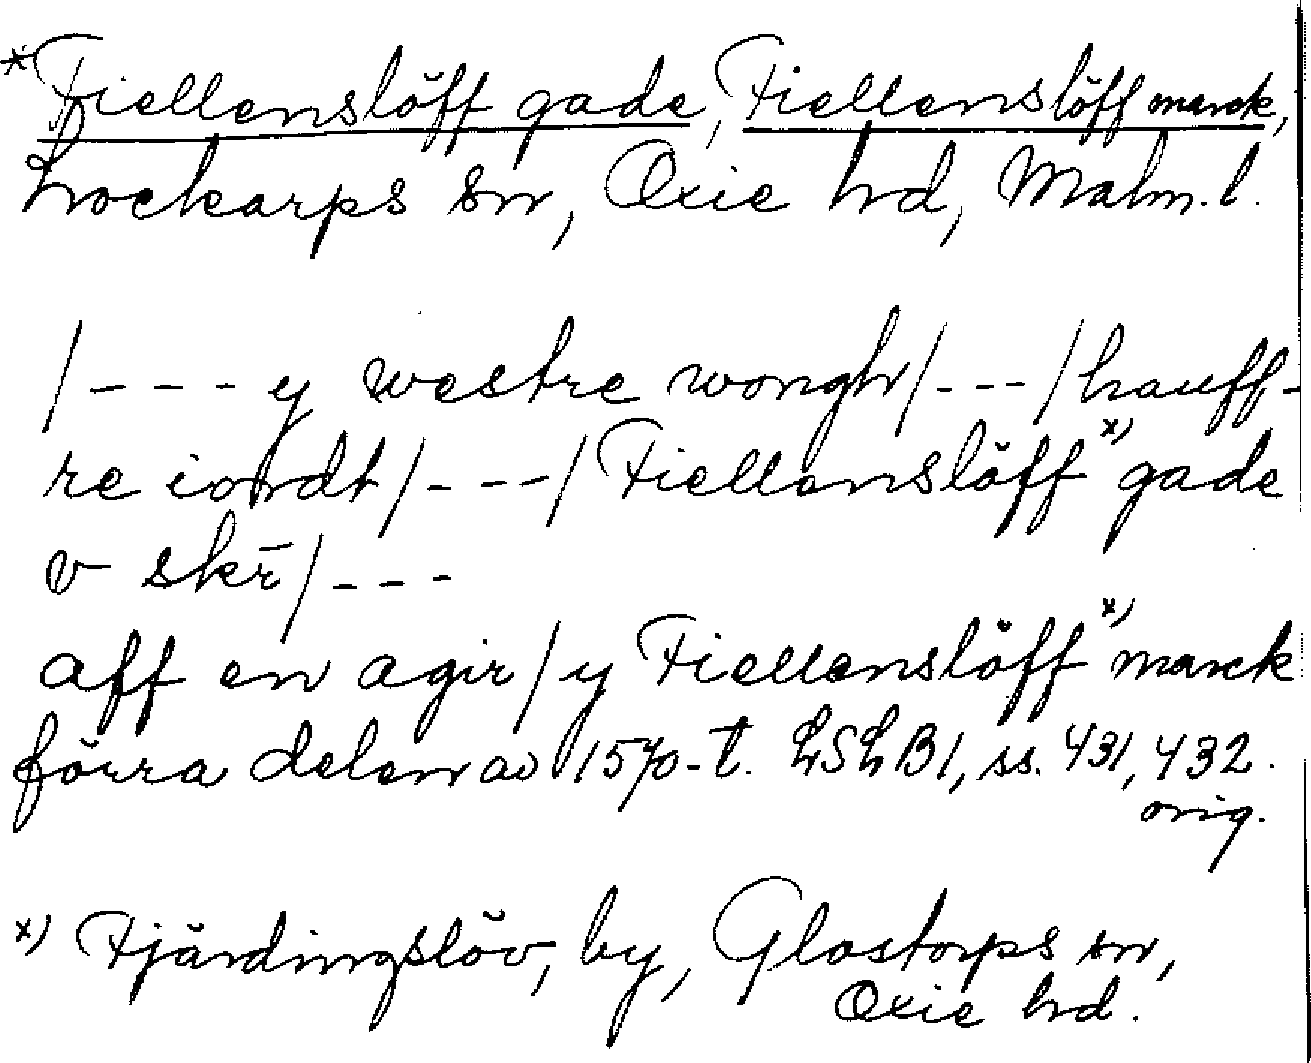 *Fiellenslöff gade, Fiellenslöff marck,
Lockarps sn, Oxie hd, Malm. l.
/--- y westre wongh/---/hauff-
re iordt/---/Fiellenslöff x) gade
v skr̄/---
aff en agir/y Fiellenslöff x) marck
förra delen av 1570-t. LSLB1, ss. 431, 432.
orig.
x) Fjärdingslöv, by, Glostorps sn,
Oxie hd.